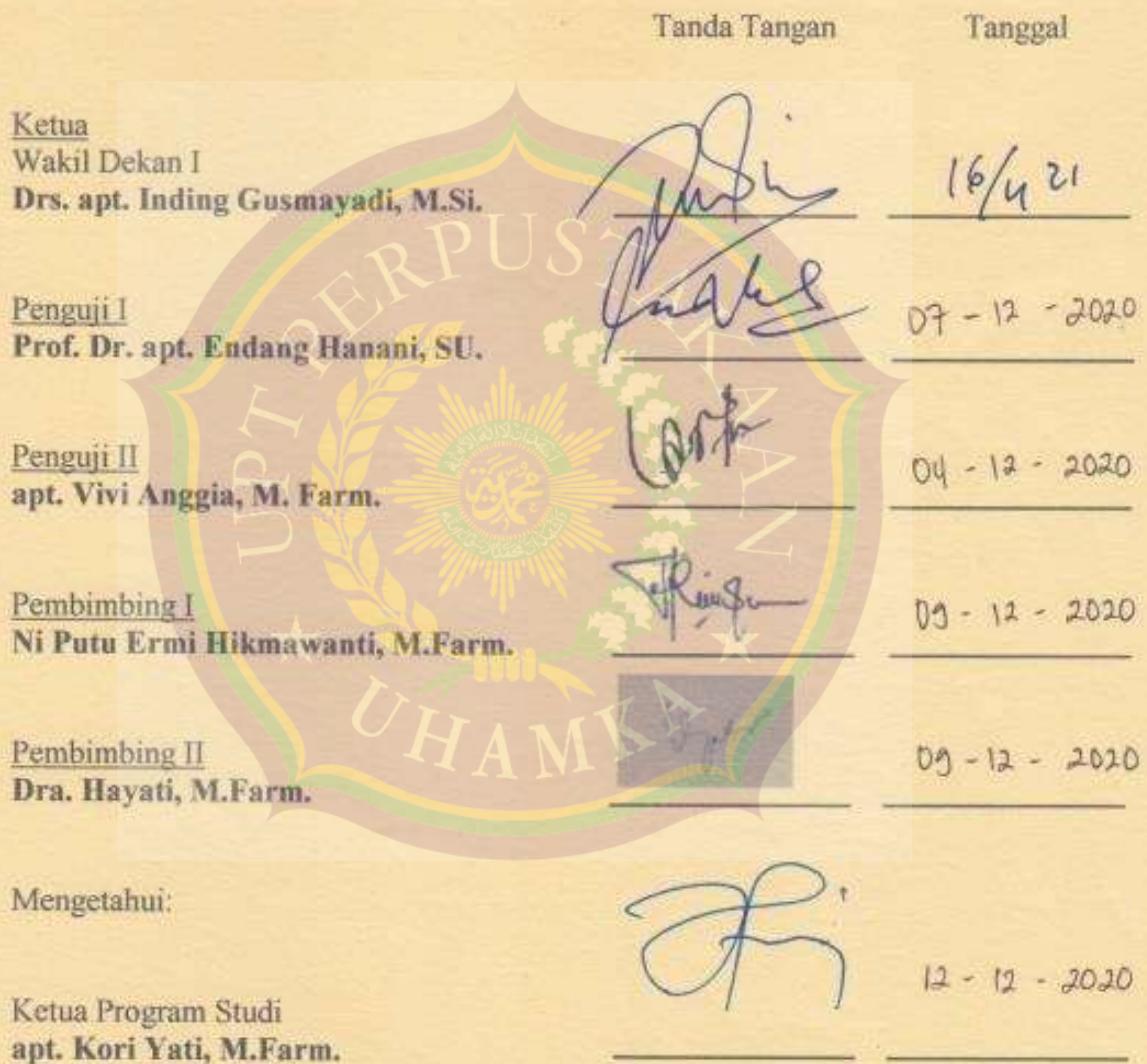 Tanda Tangan Tanggal
Ketua
Wakil Dekan I
Drs. apt. Inding Gusmayadi, M.Si.
16/4 21
Penguji I
Prof. Dr. apt. Endang Hanani, SU.
07 - 12 - 2020
Penguji II
apt. Vivi Anggia, M. Farm.
04 - 12 - 2020
Pembimbing I
Ni Putu Ermi Hikmawanti, M.Farm.
09 - 12 - 2020
Pembimbing II
Dra. Hayati, M.Farm.
09 - 12 - 2020
Mengetahui:
Ketua Program Studi
apt. Kori Yati, M.Farm.
12 - 12 - 2020
UPT PERPUSTAKAAN
UHAMKA